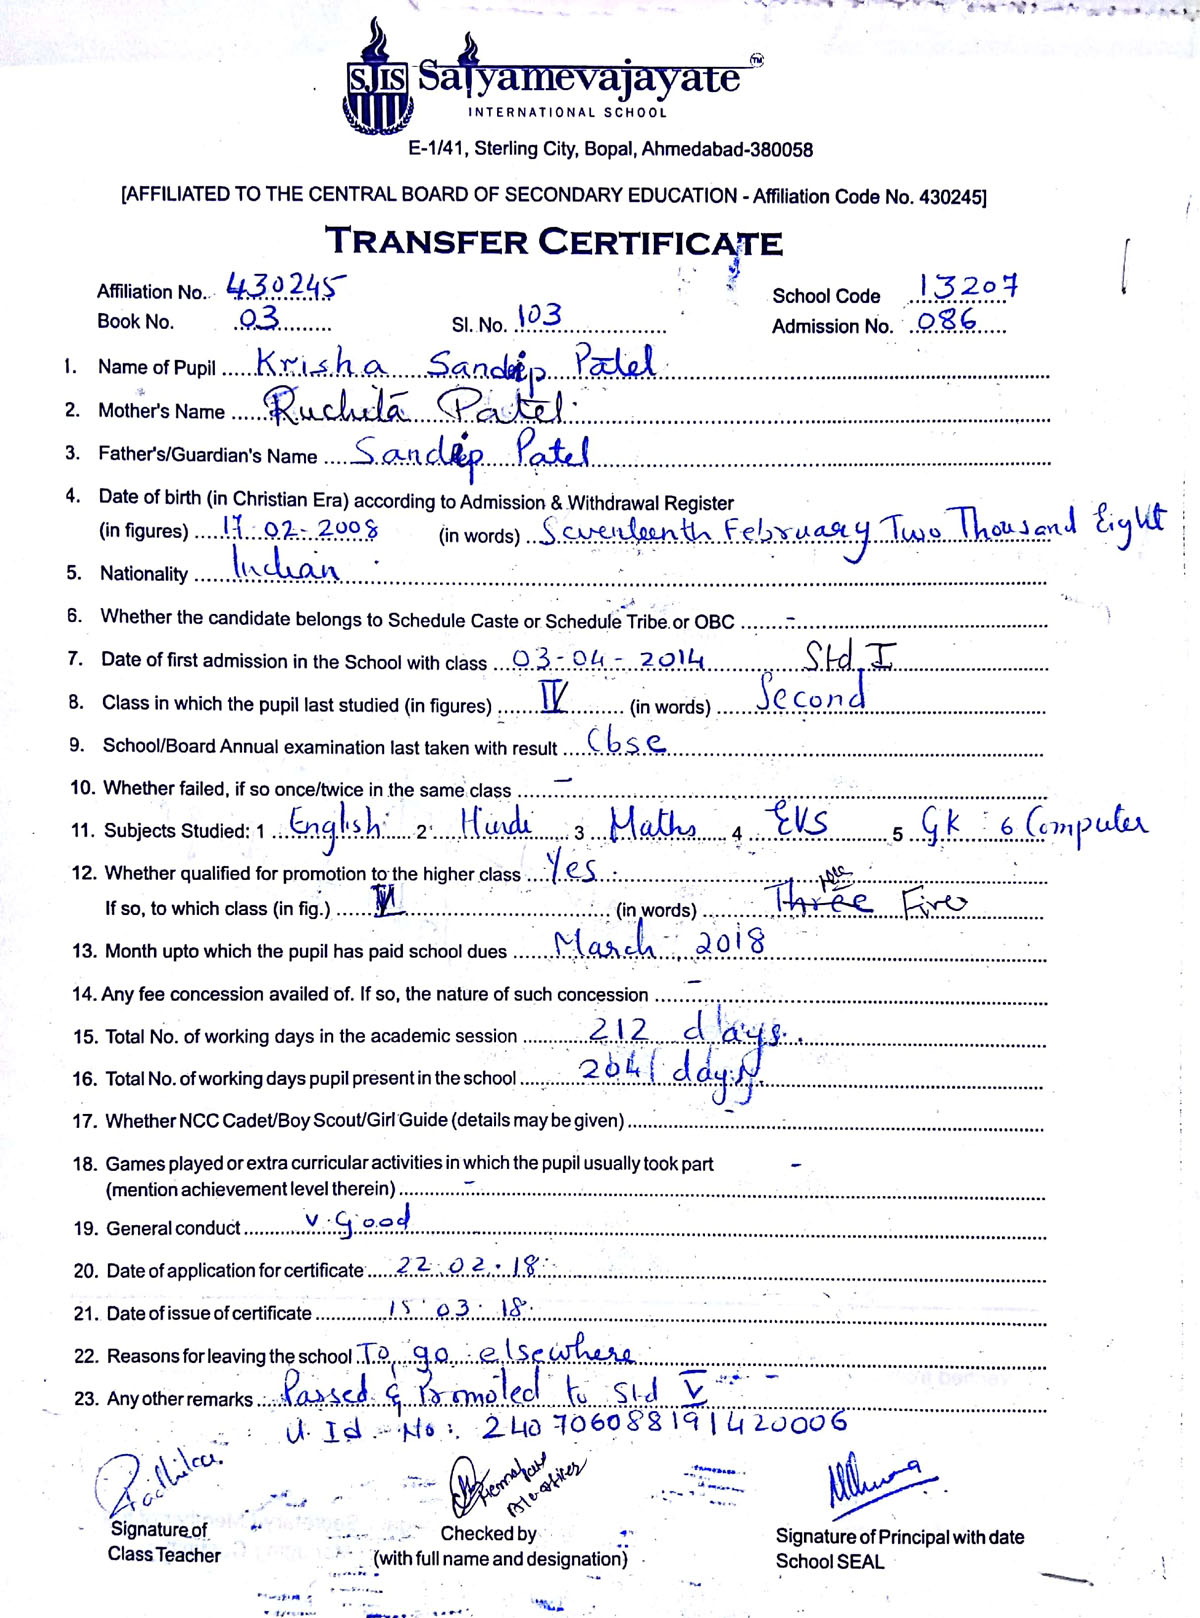 SJIS Satyamevajayate TM
INTERNATIONAL SCHOOL
E-1/41, Sterling City, Bopal, Ahmedabad-380058
[AFFILIATED TO THE CENTRAL BOARD OF SECONDARY EDUCATION - Affiliation Code No. 430245]
TRANSFER CERTIFICATE
Affiliation No. 430245 School Code 13207
Book No. 03 Sl. No. 103 Admission No. 086
1. Name of Pupil Krisha Sandip Patel
2. Mother's Name Ruchita Patel
3. Father's/Guardian's Name Sandip Patel
4. Date of birth (in Christian Era) according to Admission & Withdrawal Register
(in figures) 17-02-2008 (in words) Seventeenth February Two Thousand Eight
5. Nationality Indian
6. Whether the candidate belongs to Schedule Caste or Schedule Tribe or OBC -
7. Date of first admission in the School with class 03-04-2014 Std I
8. Class in which the pupil last studied (in figures) IV (in words) Second
9. School/Board Annual examination last taken with result Cbse
10. Whether failed, if so once/twice in the same class -
11. Subjects Studied: 1 English 2 Hindi 3 Maths 4 EVS 5 GK 6 Computer
12. Whether qualified for promotion to the higher class Yes
If so, to which class (in fig.) V (in words) Three Five
13. Month upto which the pupil has paid school dues March, 2018
14. Any fee concession availed of. If so, the nature of such concession -
15. Total No. of working days in the academic session 212 days.
16. Total No. of working days pupil present in the school days.
17. Whether NCC Cadet/Boy Scout/Girl Guide (details may be given) -
18. Games played or extra curricular activities in which the pupil usually took part -
(mention achievement level therein) -
19. General conduct V. Good
20. Date of application for certificate 22.02.18
21. Date of issue of certificate 15.03.18
22. Reasons for leaving the school To go elsewhere
23. Any other remarks Passed & Promoted to Std V
U. Id No: 240706088191420006
Radhika
Signature of Checked by Signature of Principal with date
Class Teacher (with full name and designation) School SEAL